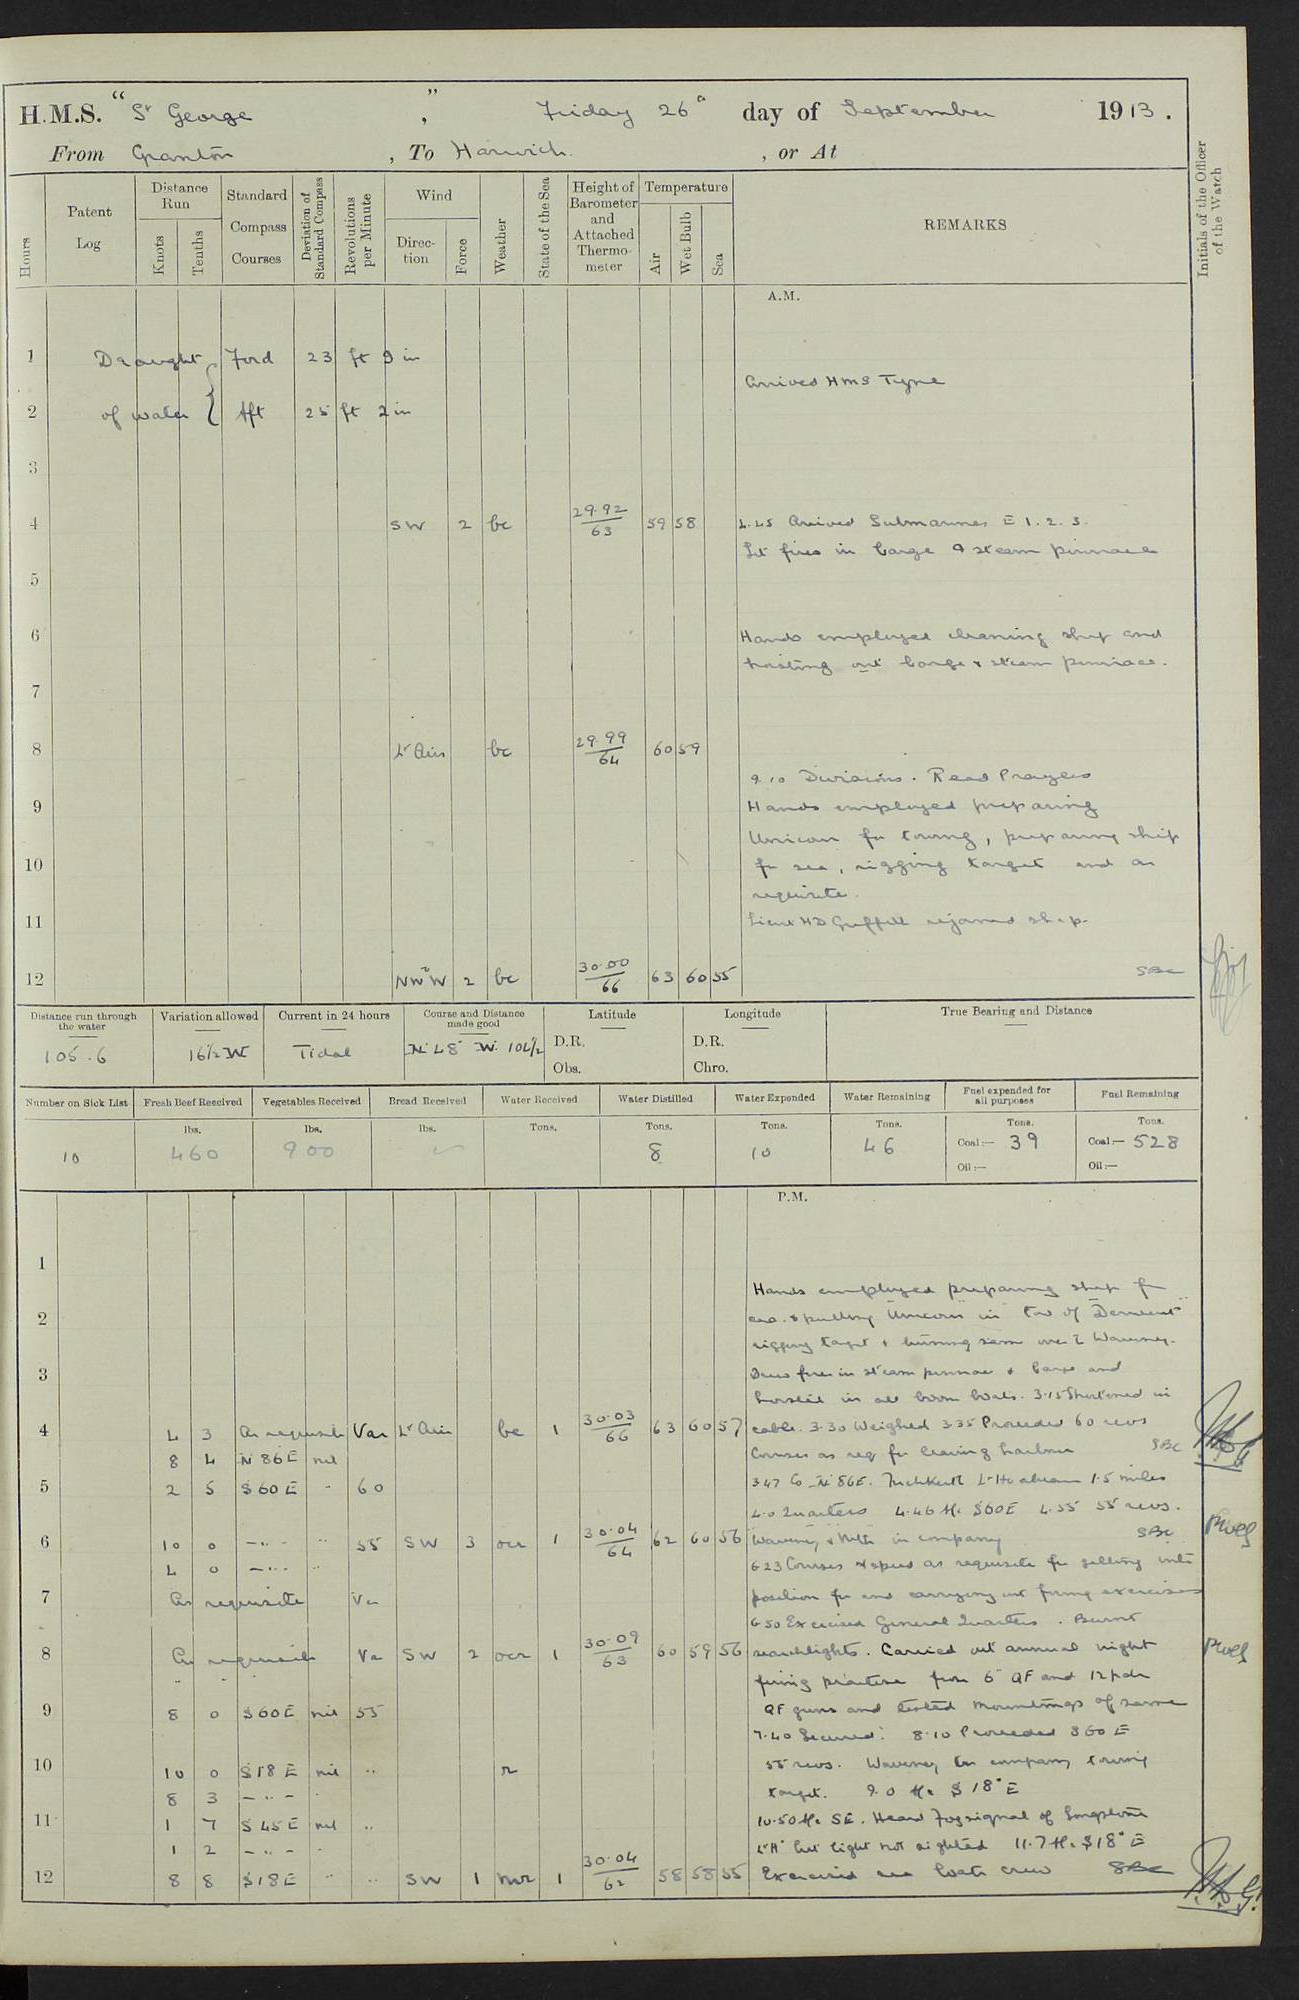 H.M.S. " St George " , Friday 26th day of September 1913.
From Granton , To Harwich. , or At
Hours
Patent Log
Distance Run
Knots
Tenths
Standard Compass Courses
Deviation of Standard Compass
Revolutions per Minute
Wind
Direction
Force
Weather
State of the Sea
Height of Barometer and Attached Thermometer
Temperature
Air
Wet Bulb
Sea
REMARKS
Initials of the Officer of the Watch
A.M.
1 Draught Ford 23 ft 9 in
Arrived HMS Tyne
2 of water Aft 25 ft 2 in
3
4 SW 2 bc 29.92/63 59 58 4.45 Arrived Submarines E 1. 2. 3.
Lit fires in barge & steam pinnace
5
6 Hands employed cleaning ship and
hoisting out barge & steam pinnace.
7
8 Lt Airs bc 29.99/64 60 59
9.10 Divisions. Read Prayers
9 Hands employed preparing
Unicorn for towing, preparing ship
10 for sea, rigging target and as
requisite.
11 Lieut HD rejoined ship.
12 NWbW 2 bc 30.00/66 63 60 55 SBC
Distance run through the water
Variation allowed
Current in 24 hours
Course and Distance made good
Latitude
Longitude
True Bearing and Distance
105.6 16½ W Tidal N 48 W. 104½ D.R. D.R.
Obs. Chro.
Number on Sick List
Fresh Beef Received
Vegetables Received
Bread Received
Water Received
Water Distilled
Water Expended
Water Remaining
Fuel expended for all purposes
Fuel Remaining
lbs. lbs. lbs. Tons. Tons. Tons. Tons. Tons. Tons.
10 460 900 8 10 46 Coal:— 39 Coal:— 528
Oil:— Oil:—
P.M.
1
Hands employed preparing ship for
2 sea. & putting "Unicorn" in tow of "Derwent"
rigging target & turning same over to Waveney.
3 Drew fires in steam pinnace & barge and
hoisted in all boom boats. 3.15 Shortened in
4 4 3 As requisite Var Lt Airs bc 1 30.03/66 63 60 57 cable. 3.30 Weighed 3.35 Proceeded 60 revs
8 4 N 86 E nil Courses as req for leaving harbour SBC
5 2 5 S 60 E " 60 3.47 Co N 86 E. Inchkeith Lt Ho abeam 1.5 miles
4.0 Quarters 4.46 A/c S60E 4.55 55 revs.
6 10 0 — " — " 55 SW 3 ocr 1 30.04/64 62 60 56 Waveney & in company SBC
4 0 — " — " 6.23 Courses & speed as requisite for getting into
7 As requisite Va position for and carrying out firing exercises
6.50 Exercised General Quarters. Burnt
8 As requisite Va SW 2 ocr 1 30.09/63 60 59 56 searchlights. Carried out annual night
firing practice from 6" QF and 12 pdr
9 8 0 S 60 E nil 55 QF guns and tested mountings of same
7.40 Secured. 8.10 Proceeded S 60 E
10 10 0 S 18 E nil " r 55 revs. Waveney in company towing
8 3 — " — target. 9.0 A/c S 18° E
11 1 7 S 45 E nil " 10.50 A/c SE. Heard Fog signal of Longstone
1 2 — " — Lt H° but light not sighted 11.7 A/c S 18° E
12 8 8 S 18 E " " SW 1 mr 1 30.04/62 58 58 55 Exercised sea boats crew SBC